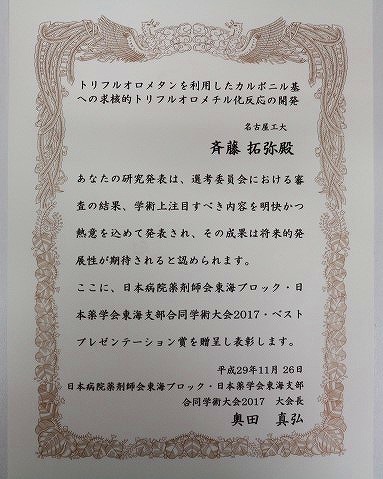 トリフルオロメタンを利用したカルボニル基
への求核的トリフルオロメチル化反応の開発
名古屋工大
斉藤 拓弥殿
あなたの研究発表は、選考委員会における審
査の結果、学術上注目すべき内容を明快かつ
熱意を込めて発表され、その成果は将来的発
展性が期待されると認められます。
ここに、日本病院薬剤師会東海ブロック・日
本薬学会東海支部合同学術大会2017・ベスト
プレゼンテーション賞を贈呈し表彰します。
平成29年11月 26日
日本病院薬剤師会東海ブロック・日本薬学会東海支部
合同学術大会2017 大会長
奥田 真弘